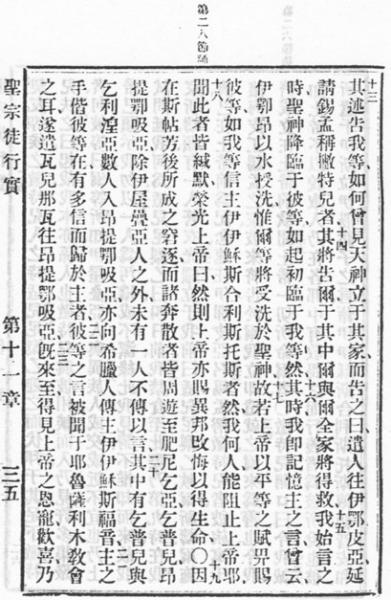 十三其述告我等如何曾見天神立于其家而告之曰遣人往伊鄂皮亞延
請錫孟稱撇特兒者十四其將告爾于其中爾與爾全家將得救十五我始言之
時聖神降臨于彼等如起初臨于我等然十六其時我卽記憶主之言曾云
伊鄂昂以水授洗惟爾等將受洗於聖神十七故若上帝以平等之賦畀賜
彼等如我等信主伊伊穌斯合利斯托斯者然我何人能阻止上帝耶
十八聞此者皆緘默榮光上帝曰然則上帝亦賜異邦改悔以得生命〇十九因
在斯帖芳後所成之窘逐而諸奔散者皆周遊至肥尼乞亞乞普兒昂
提鄂吸亞除伊屋疊亞人之外未有一人不傳以言二十其中有乞普兒與
乞利湼亞數人入昂提鄂吸亞亦向希臘人傳主伊伊穌斯福音二一主之
手偕彼等在有多信而歸於主者二二彼等之言被聞于耶魯薩利木敎會
之耳遂遣瓦兒那瓦往昂提鄂吸亞二三旣來至得見上帝之恩寵歡喜乃
聖宗徒行實 第十一章 三五